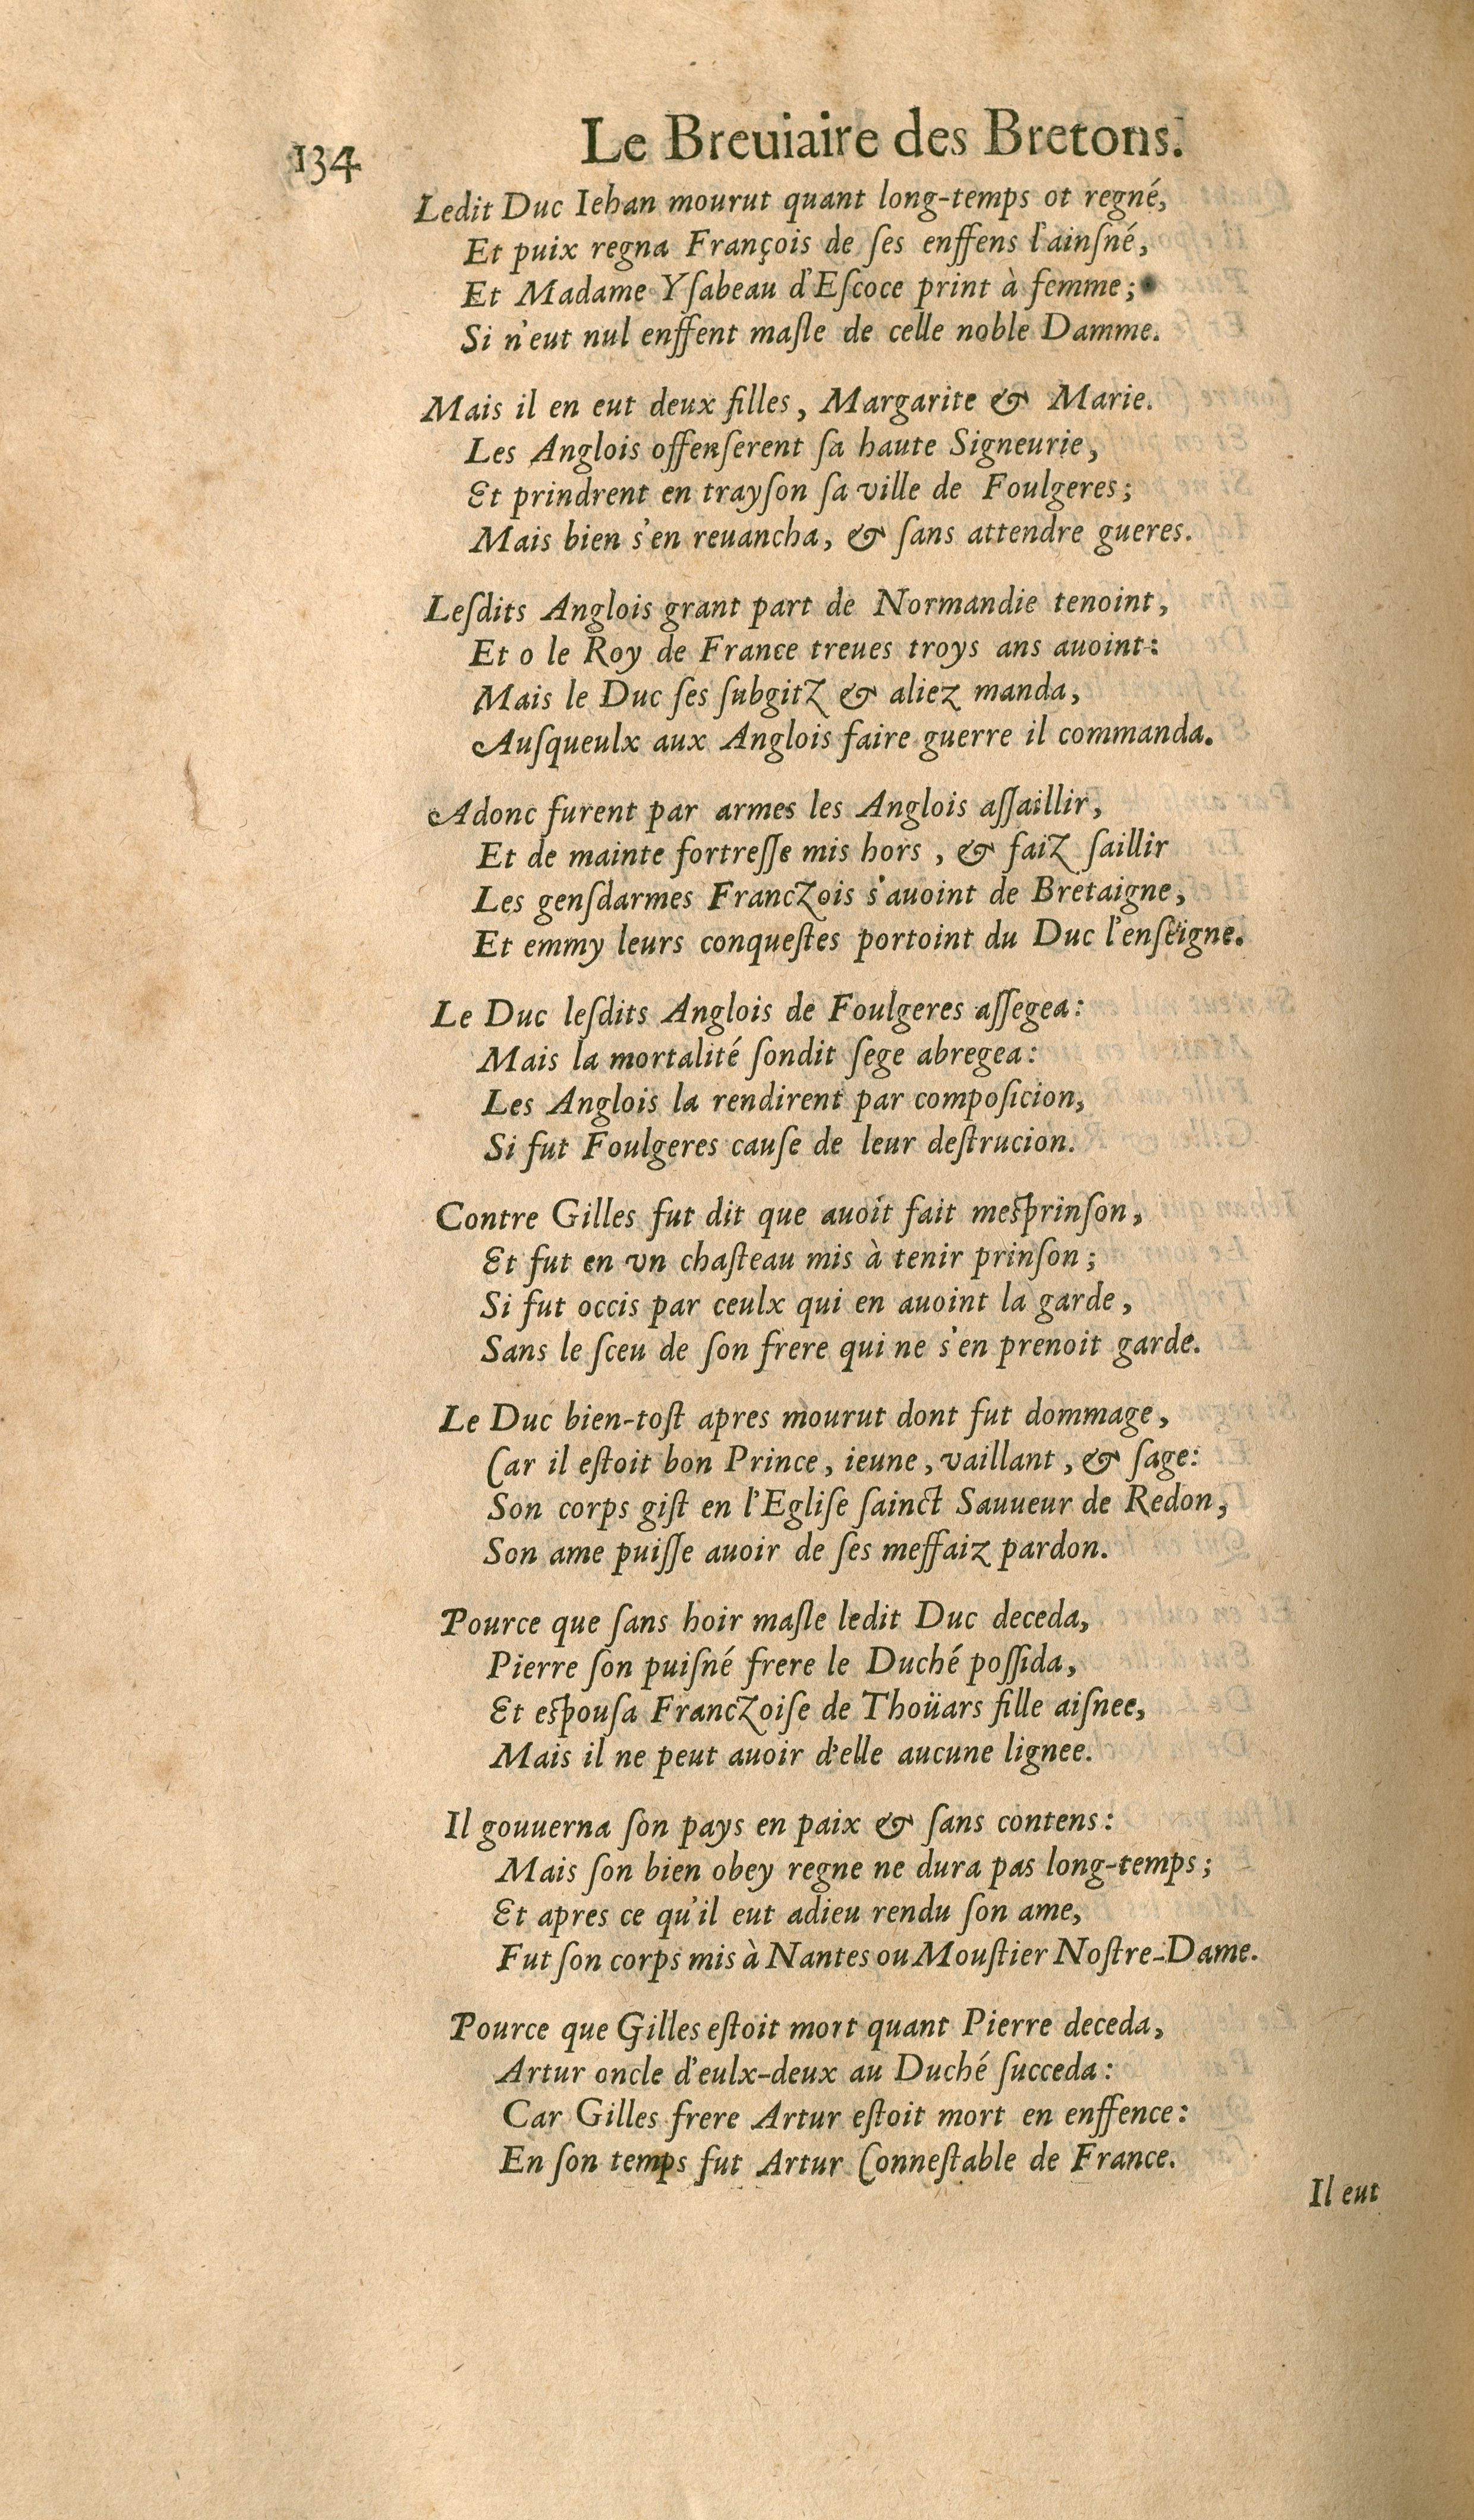 134
Le Breuiaire des Bretons.
Ledit Duc Iehan mourut quant long-temps ot regné,
Et puix regna François de ſes enffens l'ainſné,
Et Madame Yſabeau d'Eſcoce print à femme;
Si n'eut nul enffent maſle de celle noble Damme.
Mais il en eut deux filles, Margarite & Marie.
Les Anglois offenſerent ſa haute Signeurie,
Et prindrent en trayſon ſa ville de Foulgeres;
Mais bien s'en reuancha, & ſans attendre gueres.
Leſdits Anglois grant part de Normandie tenoint,
Et o le Roy de France treues troys ans auoint:
Mais le Duc ſes ſubgitz & aliez manda,
Auſqueulx aux Anglois faire guerre il commanda.
Adonc furent par armes les Anglois aſſaillir,
Et de mainte fortreſſe mis hors, & faiz ſaillir
Les genſdarmes Franczois s'auoint de Bretaigne,
Et emmy leurs conqueſtes portoint du Duc l'enſeigne.
Le Duc leſdits Anglois de Foulgeres aſſegea:
Mais la mortalité ſondit ſege abregea:
Les Anglois la rendirent par compoſicion,
Si fut Foulgeres cauſe de leur deſtrucion.
Contre Gilles fut dit que auoit fait meſprinſon,
Et fut en vn chaſteau mis à tenir prinſon;
Si fut occis par ceulx qui en auoint la garde,
Sans le ſceu de ſon frere qui ne s'en prenoit garde.
Le Duc bien-toſt apres mourut dont fut dommage,
Car il eſtoit bon Prince, ieune, vaillant, & ſage:
Son corps giſt en l'Egliſe ſainct Sauueur de Redon,
Son ame puiſſe auoir de ſes meffaiz pardon.
Pource que ſans hoir maſle ledit Duc deceda,
Pierre ſon puiſné frere le Duché poſſida,
Et eſpouſa Franczoiſe de Thoüars fille aiſnee,
Mais il ne peut auoir d'elle aucune lignee.
Il gouuerna ſon pays en paix & ſans contens:
Mais ſon bien obey regne ne dura pas long-temps;
Et apres ce qu'il eut adieu rendu ſon ame,
Fut ſon corps mis à Nantes ou Mouſtier Noſtre-Dame.
Pource que Gilles eſtoit mort quant Pierre deceda,
Artur oncle d'eulx-deux au Duché ſucceda:
Car Gilles frere Artur eſtoit mort en enffence:
En ſon temps fut Artur Conneſtable de France.
Il eut